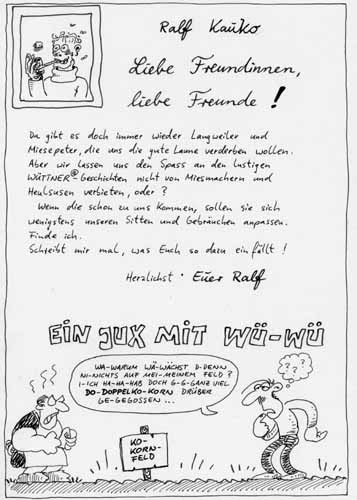 Ralf Kauko
Liebe Freundinnen,
liebe Freunde!
Da gibt es doch immer wieder Langweiler und
Miesepeter, die uns die gute Laune verderben wollen.
Aber wir lassen uns den Spass an den lustigen
WÜTTNER®-Geschichten nicht von Miesmachern und
Heulsusen verbieten, oder?
Wenn die schon zu uns kommen, sollen sie sich
wenigstens unseren Sitten und Gebräuchen anpassen.
Finde ich.
Schreibt mir mal, was Euch so dazu einfällt!
Herzlichst · Euer Ralf
EIN JUX MIT WÜ-WÜ
WA-WARUM WÄ-WÄCHST D-DENN
NI-NICHTS AUF MEI-MEINEM FELD?
I-ICH HA-HA-HAB DOCH G-G-GANZ VIEL
DO-DOPPELKO-KORN DRÜBER
GE-GEGOSSEN...
???
KO-
KORN-
FELD